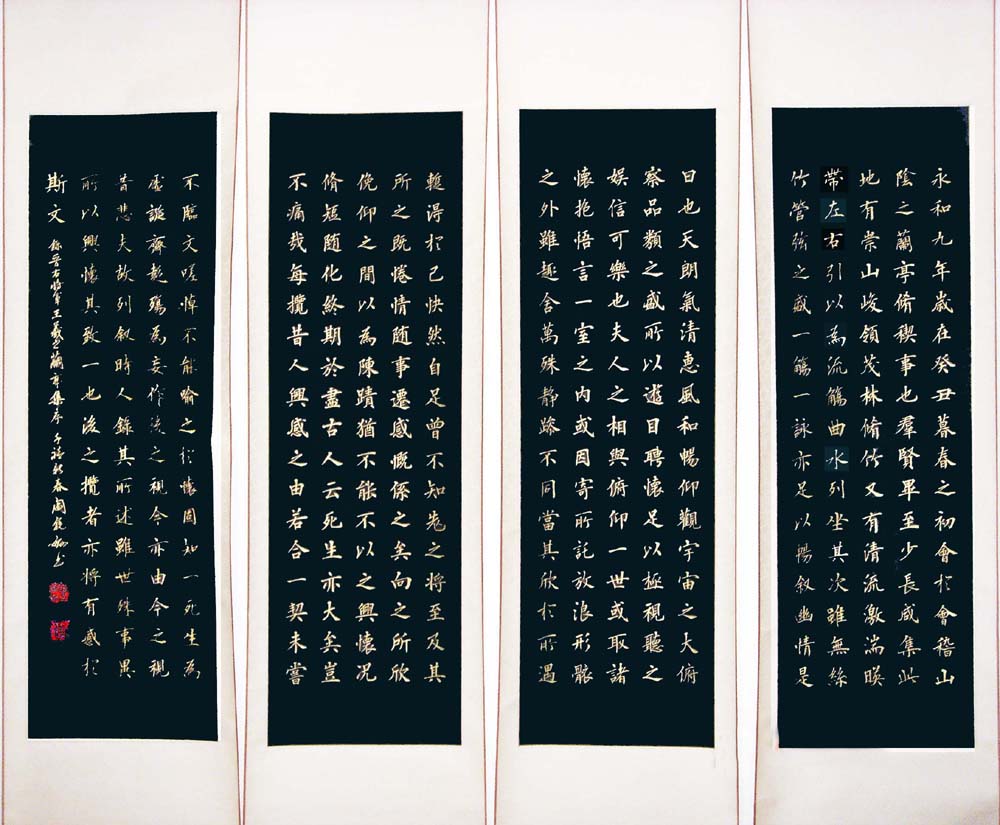 永和九年歲在癸丑暮春之初會於會稽山
陰之蘭亭脩稧事也羣賢畢至少長咸集此
地有崇山峻領茂林脩竹又有清流激湍暎
帶左右引以為流觴曲水列坐其次雖無絲
竹管弦之盛一觴一詠亦足以暢叙幽情是
日也天朗氣清惠風和暢仰觀宇宙之大俯
察品類之盛所以遊目騁懷足以極視聽之
娛信可樂也夫人之相與俯仰一世或取諸
懷抱悟言一室之內或因寄所託放浪形骸
之外雖趣舍萬殊静躁不同當其欣於所遇
暫得於己快然自足曾不知老之將至及其
所之既惓情随事遷感慨係之矣向之所欣
俛仰之間以為陳蹟猶不能不以之興懷况
脩短随化終期於盡古人云死生亦大矣豈
不痛哉每攬昔人興感之由若合一契未嘗
不臨文嗟悼不能喻之於懷固知一死生為
虛誕齊彭殤為妄作後之視今亦由今之視
昔悲夫故列叙時人錄其所述雖世殊事異
所以興懷其致一也後之攬者亦將有感於
斯文 錄晉右將軍王羲之蘭亭集序 新春 書